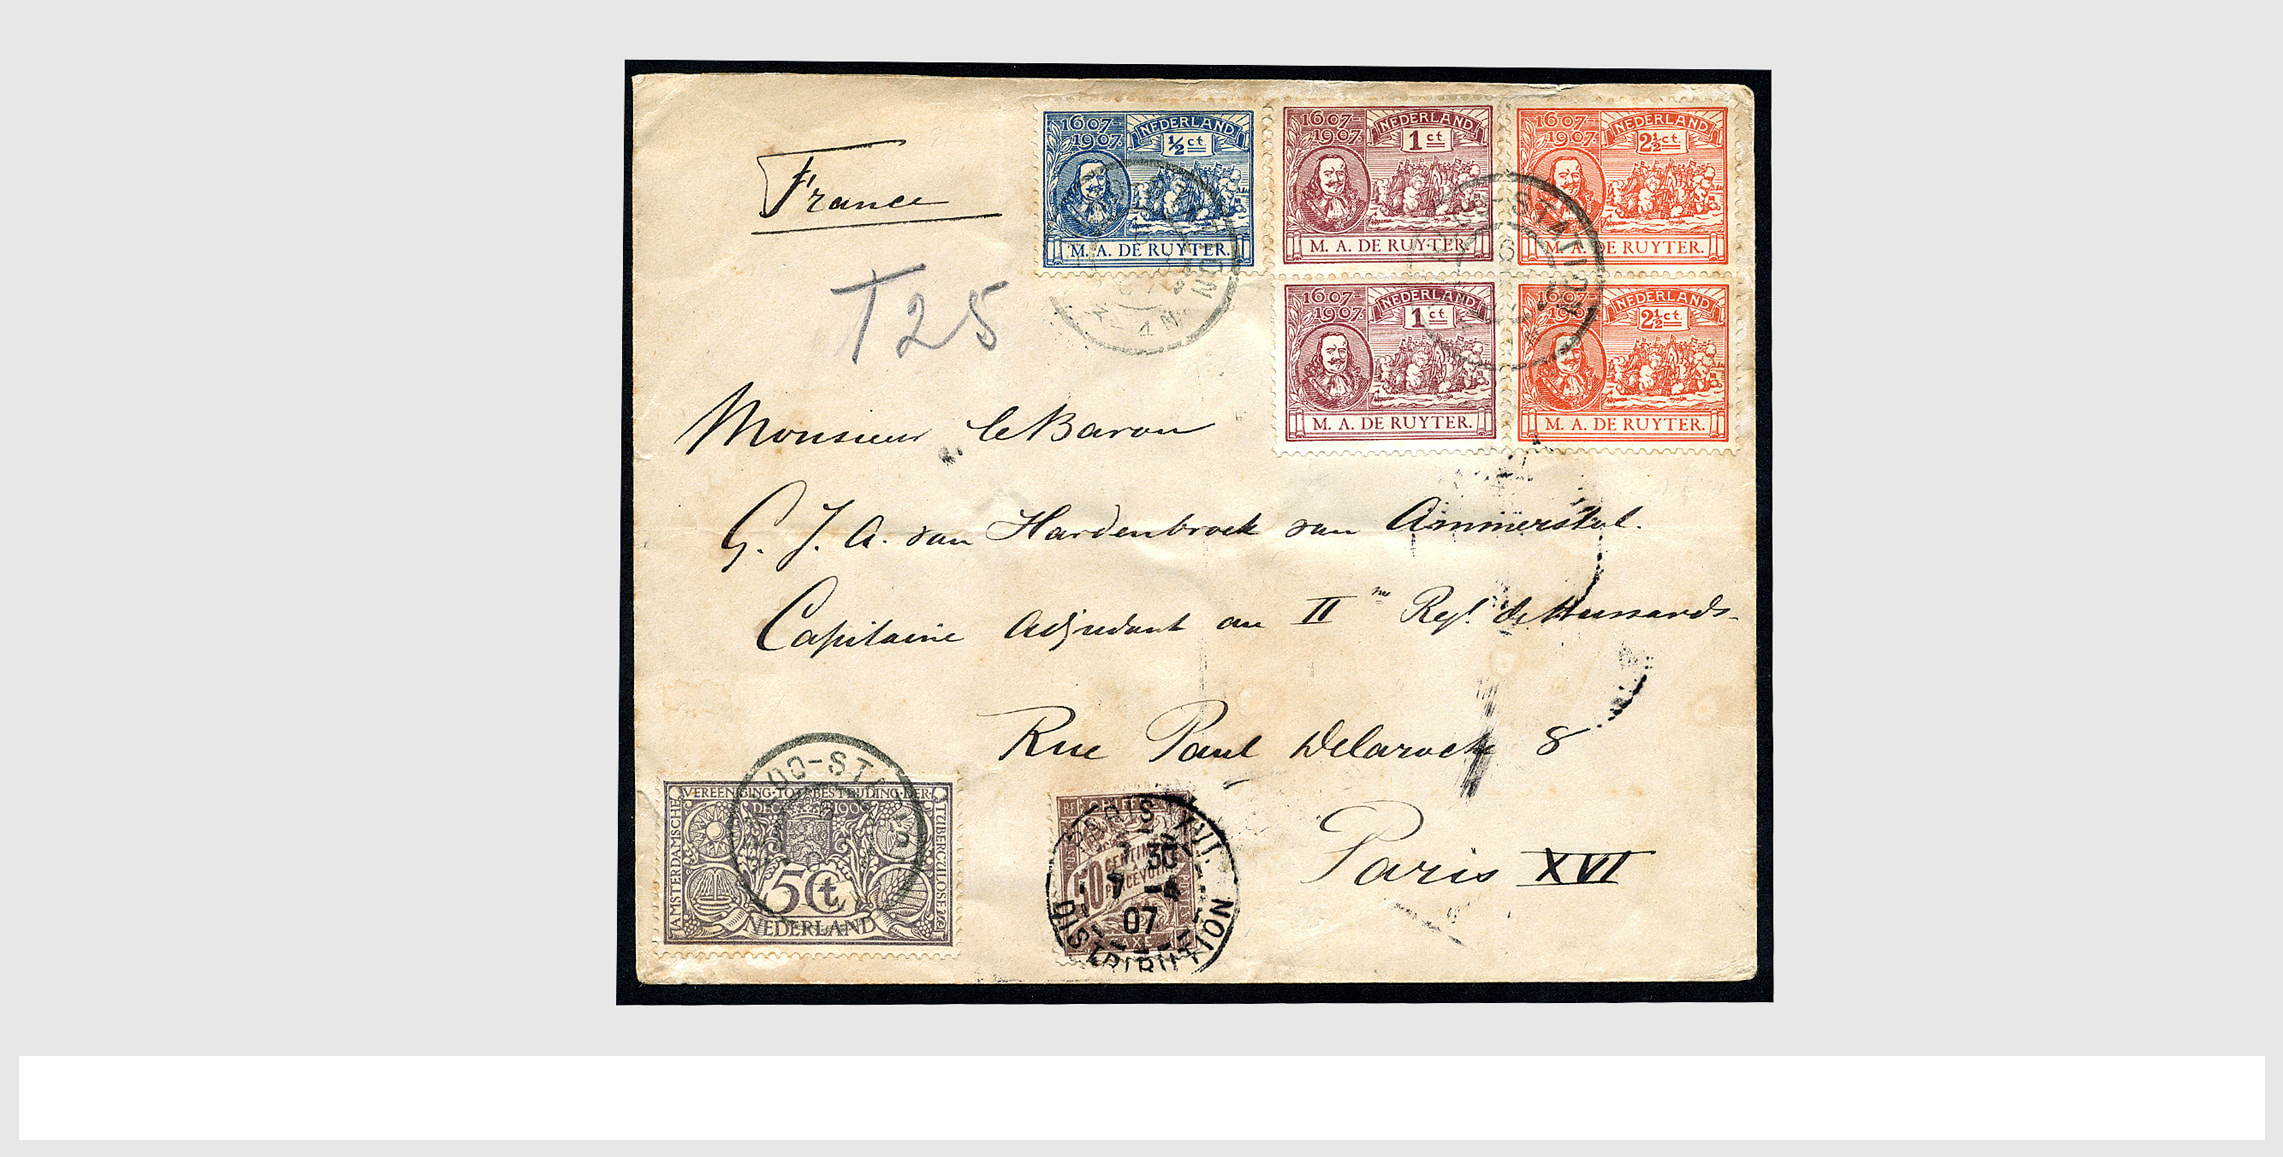 France
T25
1607 1907 NEDERLAND ½ ct M. A. DE RUYTER.
1607 1907 NEDERLAND 1 ct M. A. DE RUYTER.
1607 1907 NEDERLAND 2½ ct M. A. DE RUYTER.
1607 1907 NEDERLAND 1 ct M. A. DE RUYTER.
1607 1907 NEDERLAND 2½ ct M. A. DE RUYTER.
STATION
Monsieur le Baron
G. J. A. van Hardenbroek van Ammerstol.
Capitaine Adjudant au II me Reg! de Hussards
Rue Paul Delaroche 8
Paris XVI
AMSTERDAMSCHE VEREENIGING TOT BESTRIJDING DER TUBERCULOSE
DEC 1906
5 Ct
NEDERLAND
RF
50 CENTIMES
PERCEVOIR
PARIS XVI
30
7 - 4
07
DISTRIBUTION